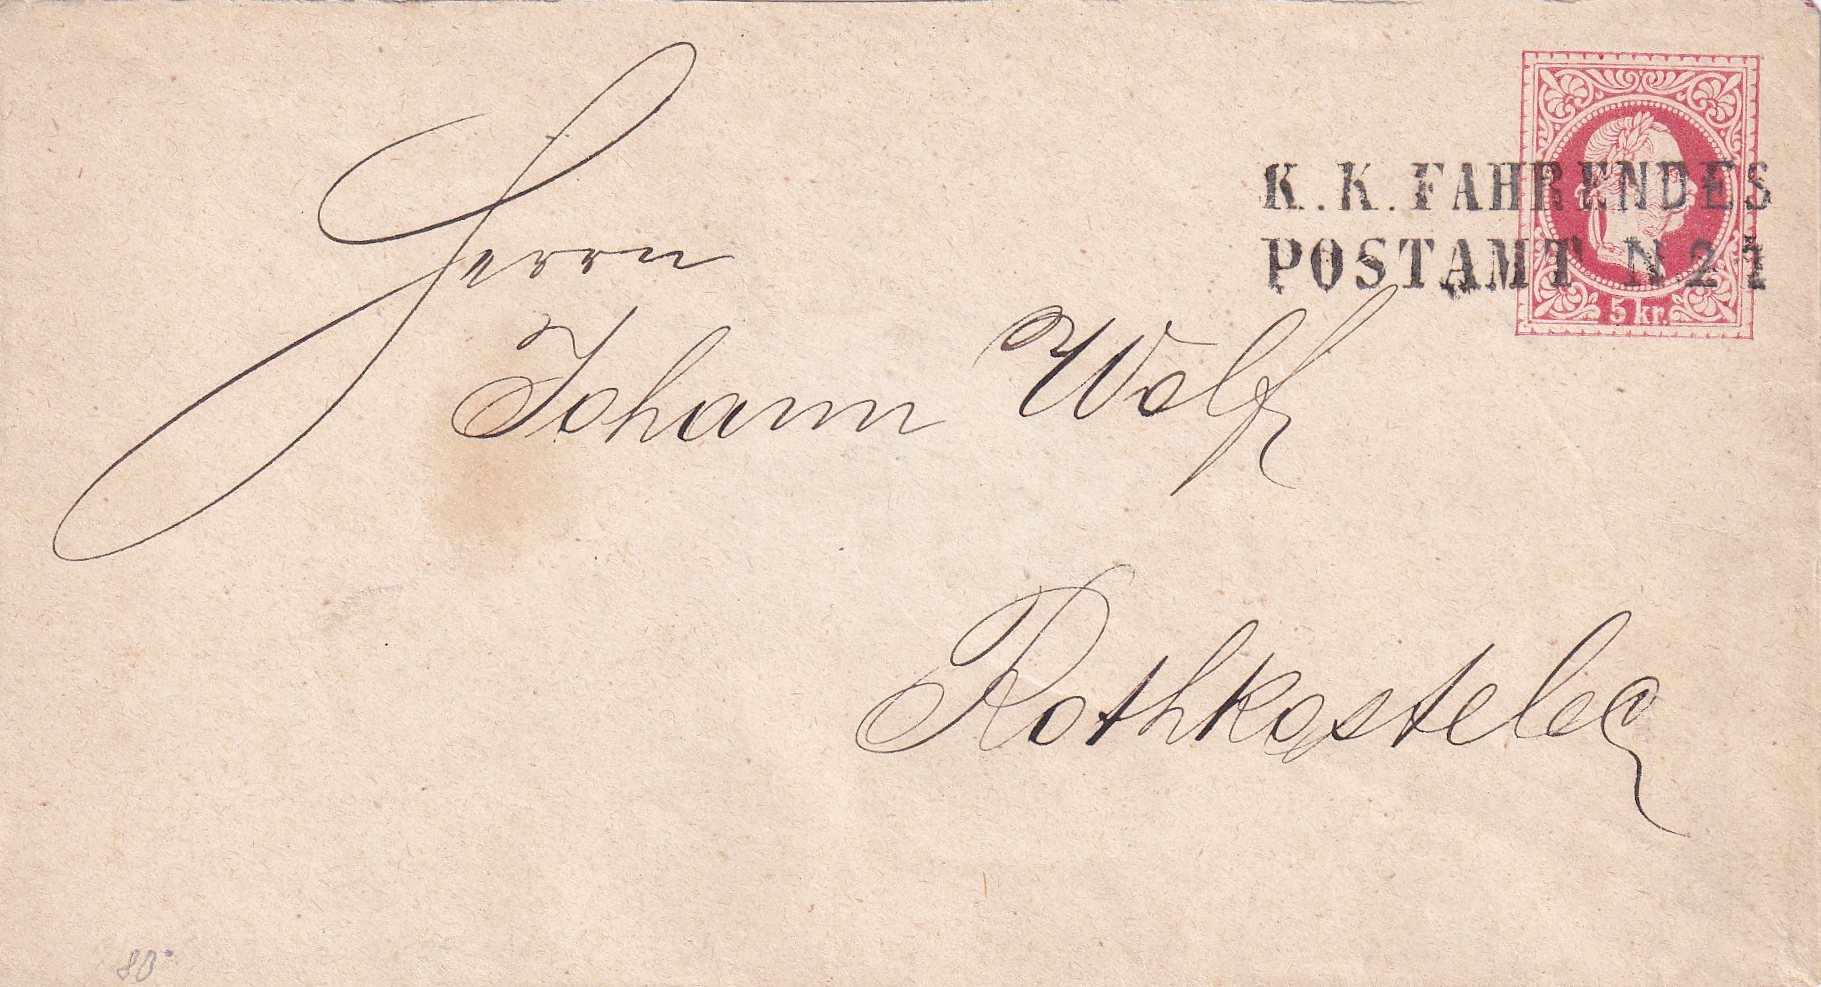 K.K.FAHRENDES
POSTAMT N 21
5 kr.
Herrn
Johann Wolf
Rothkosteletz
80